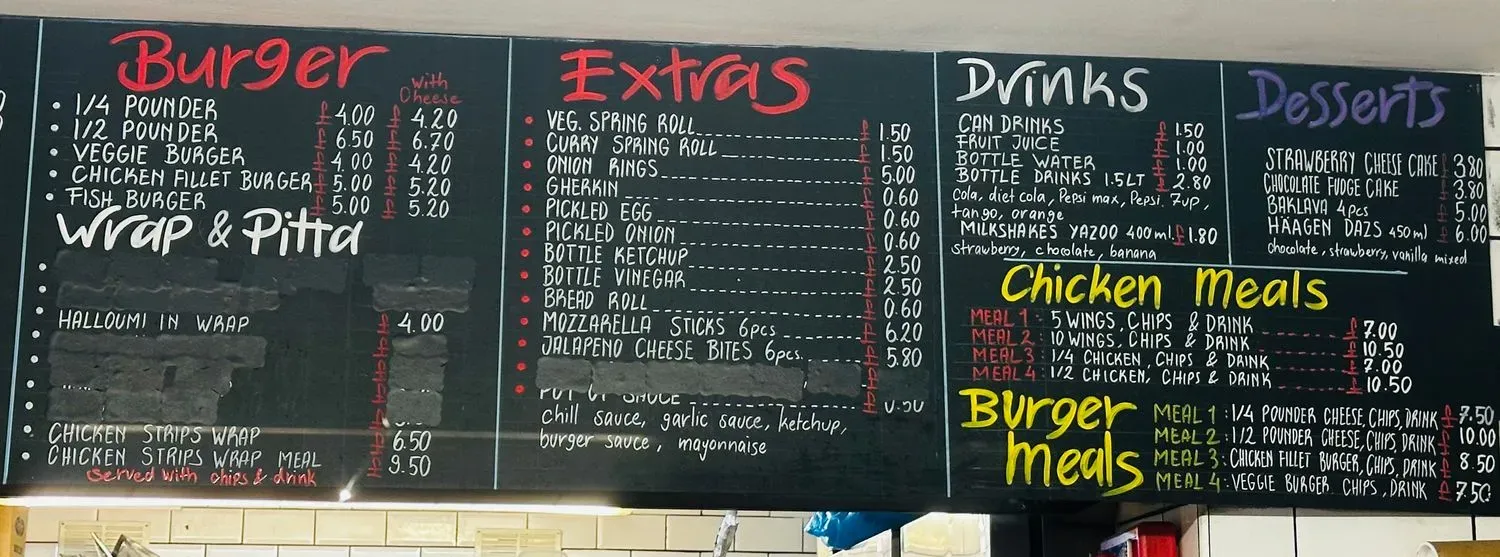 Burger
with
Cheese
1/4 POUNDER £4.00 £4.20
1/2 POUNDER £6.50 £6.70
VEGGIE BURGER £4.00 £4.20
CHICKEN FILLET BURGER £5.00 £5.20
FISH BURGER £5.00 £5.20
Wrap & Pitta
HALLOUMI IN WRAP £4.00
CHICKEN STRIPS WRAP £6.50
CHICKEN STRIPS WRAP MEAL £9.50
served with chips & drink
Extras
VEG. SPRING ROLL £1.50
CURRY SPRING ROLL £1.50
ONION RINGS £5.00
GHERKIN £0.60
PICKLED EGG £0.60
PICKLED ONION £0.60
BOTTLE KETCHUP £2.50
BOTTLE VINEGAR £2.50
BREAD ROLL £0.60
MOZZARELLA STICKS 6pcs £6.20
JALAPENO CHEESE BITES 6pcs. £5.80
POT OF SAUCE
chill sauce, garlic sauce, ketchup,
burger sauce, mayonnaise
Drinks
CAN DRINKS £1.50
FRUIT JUICE £1.00
BOTTLE WATER £1.00
BOTTLE DRINKS 1.5LT £2.80
cola, diet cola, Pepsi max, Pepsi. 7up,
tango, orange
MILKSHAKES YAZOO 400ml. £1.80
strawberry, chocolate, banana
Desserts
STRAWBERRY CHEESE CAKE £3.80
CHOCOLATE FUDGE CAKE £3.80
BAKLAVA 4pcs £5.00
HÄAGEN DAZS 450ml £6.00
chocolate, strawberry, vanilla mixed
Chicken Meals
MEAL 1: 5 WINGS, CHIPS & DRINK £7.00
MEAL 2: 10 WINGS, CHIPS & DRINK £10.50
MEAL 3: 1/4 CHICKEN, CHIPS & DRINK £7.00
MEAL 4: 1/2 CHICKEN, CHIPS & DRINK £10.50
Burger
meals
MEAL 1: 1/4 POUNDER CHEESE, CHIPS, DRINK £7.50
MEAL 2: 1/2 POUNDER CHEESE, CHIPS, DRINK £10.00
MEAL 3: CHICKEN FILLET BURGER, CHIPS, DRINK £8.50
MEAL 4: VEGGIE BURGER CHIPS, DRINK £7.50